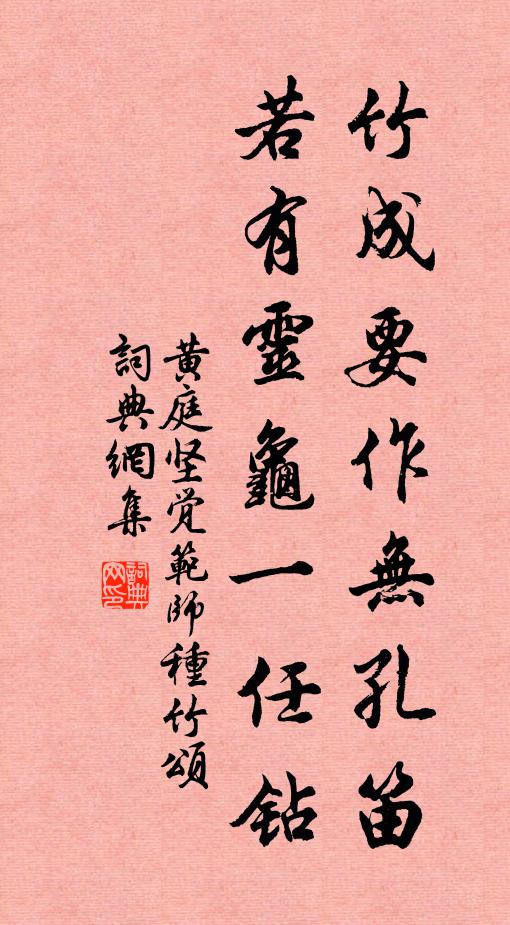 竹成要作無孔笛
若有靈龜一任鉆
黄庭坚觉範師種竹頌
詞典網集
詞典网印